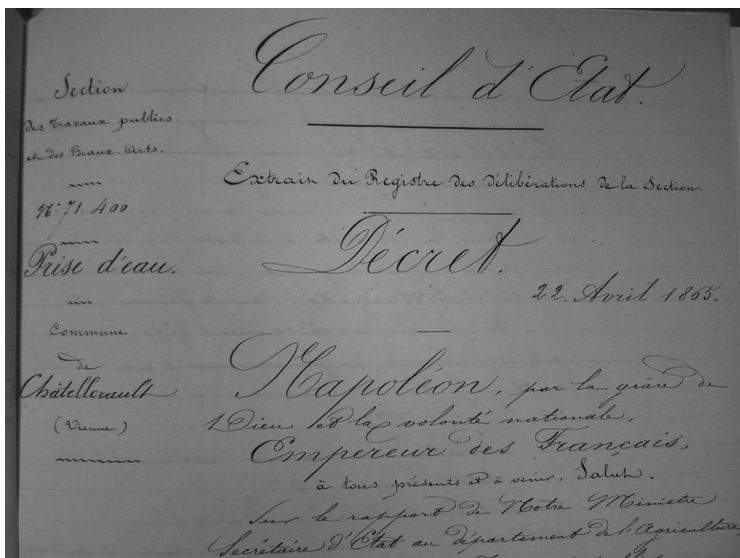 Section
des Travaux publics
et des Beaux-Arts.
N.° 71.400
Prise d'eau.
Commune
de
Châtellerault
(Vienne)
Conseil d'Etat.
Extrait du Registre des Délibérations de la Section.
Décret.
22. Avril 1865.
Napoléon, par la grâce de
Dieu et la volonté nationale,
Empereur des Français,
à tous présents et à venir, Salut.
Sur le rapport de Notre Ministre
Secrétaire d'Etat au département de l'Agriculture,